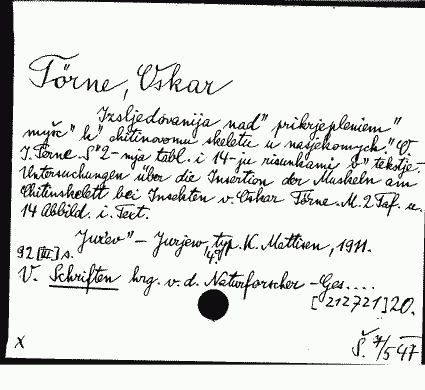 Törne, Oskar
Izsljedovanija nad" prikrjepleniem"
myšc" k" chitinovomu skeletu u nasjekomych." O.
I. Terne. S" 2-mja tabl. i 14-ju risunkami v" tekstje.-
Untersuchungen über die Insertion der Muskeln am
Chitinskelett bei Insekten v. Oskar Törne. M. 2 Taf. u.
14 Abbild. i. Text.
Jur'ev" - Jurjew, typ. K. Mattisen, 1911.
92 [III] s. 4°
V. Schriften hrg. v. d. Naturforscher-Ges....
[212721] 20.
X
Š. 7/5 47